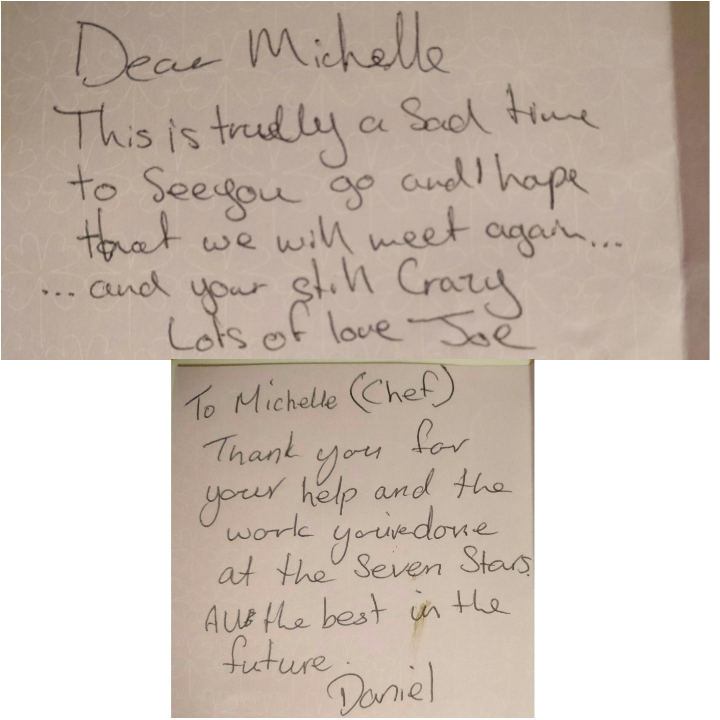 Dear Michelle
This is trudly a Sad time
to See you go and I hope
that we will meet again...
... and your still Crazy
Lots of love Joe
To Michelle (Chef)
Thank you for
your help and the
work you'vedone
at the Seven Stars.
All the best in the
future.
Daniel